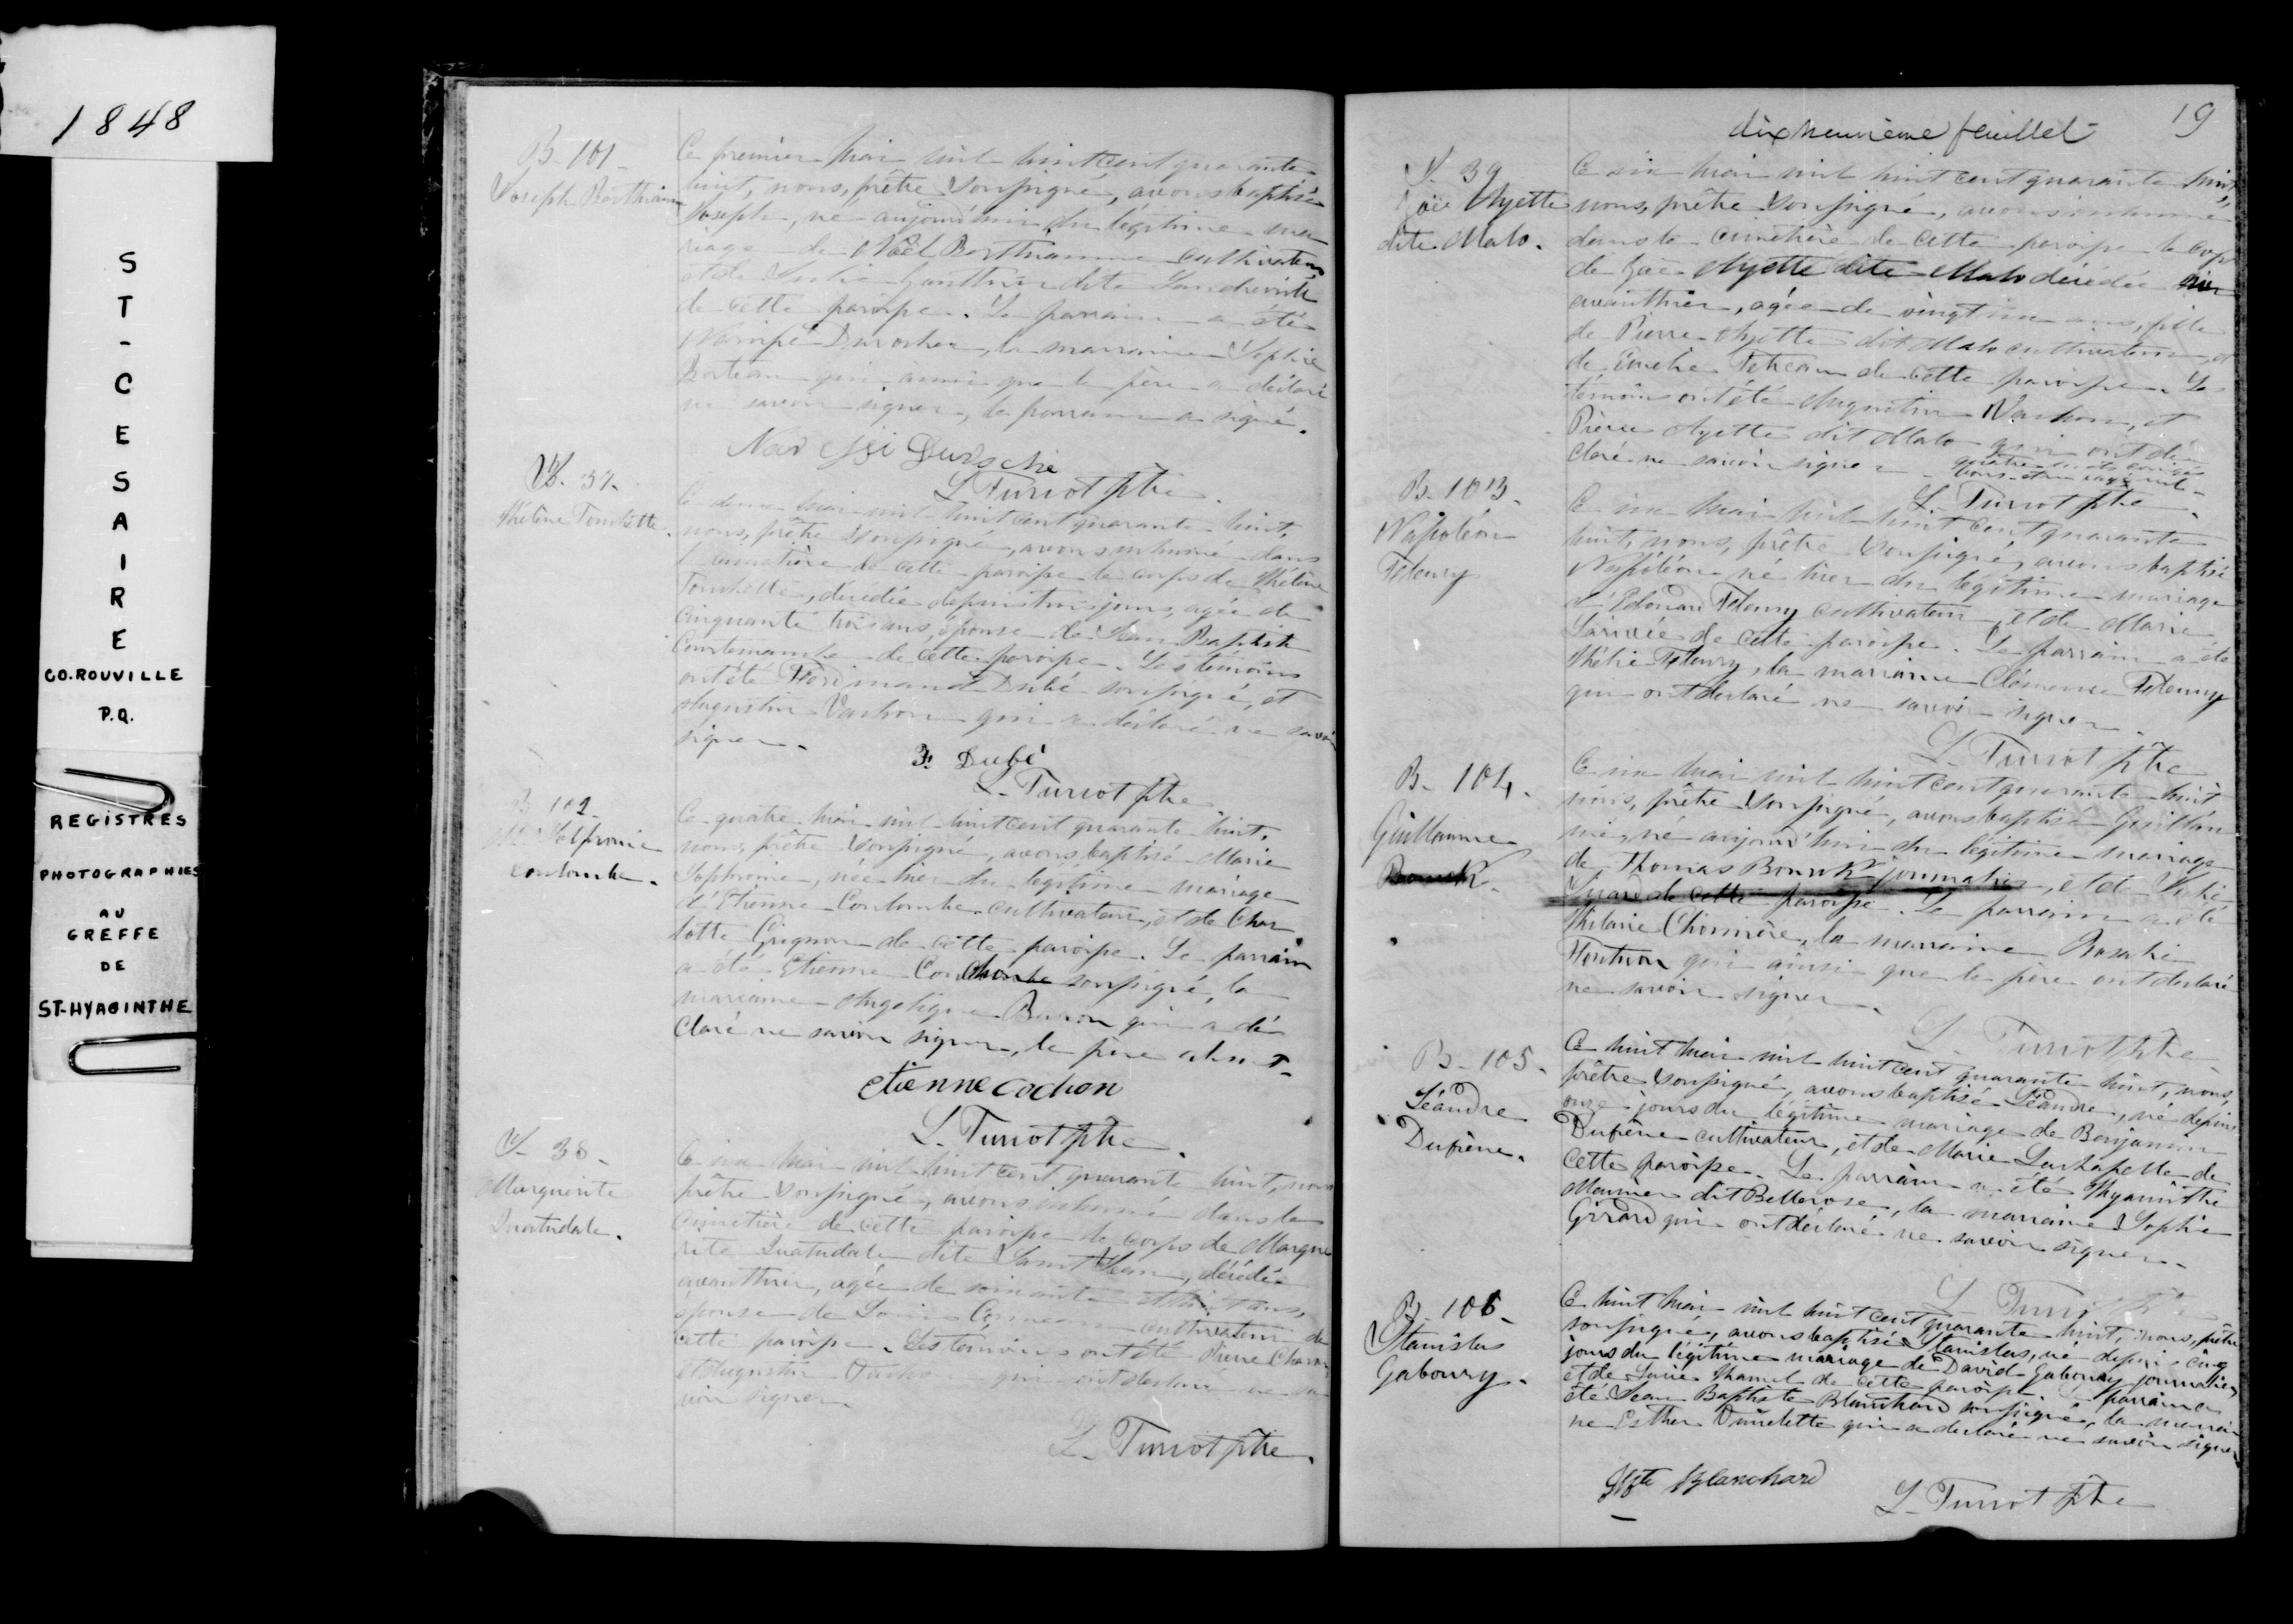 1848
ST-CESAIRE
CO. ROUVILLE
P.Q.
REGISTRES
PHOTOGRAPHIES
AU
GREFFE
DE
ST-HYACINTHE
B-101-
Joseph Berthiaume
Ce premier mai mil huit cent quarante
huit, nous, prêtre soussigné, avons baptisé
Joseph, né aujourd'hui du légitime ma
riage de Noël Berthiaume cultivateur
et de Gauthier dite Landreville
de cette paroisse. Le parrain a été
Narcisse Durocher, la marraine Sophie
qui ainsi que le père a déclaré
ne savoir signer, le parrain a signé.
L. Turcot ptre.
S. 37.
Hélène Touchette.
Ce deux mai mil huit cent quarante huit,
nous, prêtre soussigné, avons inhumé dans
le cimetière de cette paroisse le corps de Hélène
Touchette, décédée depuis trois jours, agée de
cinquante trois ans, épouse de Jean Baptiste
Courtemanche de cette paroisse. Les témoins
ont été Ferdinand Dubé soussigné, et
Augustin Vachon qui a déclaré ne savoir
signer.
F. Dubé
L. Turcot ptre.
B-102-
Coulombe.
Ce quatre mai mil huit cent quarante huit,
nous, prêtre soussigné, avons baptisé Marie
née hier du légitime mariage
d'Etienne Coulombe cultivateur, et de Char
lotte Grignon de cette paroisse. Le parrain
a été Etienne soussigné, la
marraine Angelique qui a dé
claré ne savoir signer, le père absent.
etienne cochon
L. Turcot ptre.
S. 38-
Marguerite
Ce six mai mil huit cent quarante huit, nous
prêtre soussigné, avons inhumé dans le
cimetière de cette paroisse le corps de Margue
rite dite Saint Jean, décédée
avanthier, agée de soixante et huit ans,
épouse de Louis cultivateur de
cette paroisse. Les témoins ont été Pierre
et Augustin Vachon qui ont déclaré ne sa
voir signer.
L. Turcot ptre.
dix neuvième feuillet
19
S. 39
Zoé Ayette
dite Malo.
Ce six mai mil huit cent quarante huit,
nous, prêtre soussigné, avons inhumé
dans le cimetière de cette paroisse le corps
de Zoé Ayette dite Malo décédée
avanthier, agée de vingt ans, fille
de Pierre Ayette dit Malo cultivateur, et
de Emelie de cette paroisse. Les
témoins ont été Augustin Vachon, et
Pierre Ayette dit Malo qui ont dé
claré ne savoir signer.
L. Turcot ptre.
B-103-
Napoléon
Fleury
Ce six mai mil huit cent quarante
huit, nous, prêtre soussigné, avons baptisé
Napoléon né hier du légitime mariage
d'Edouard Fleury cultivateur, et de Marie
Larivée de cette paroisse. Le parrain a été
Fleury, la marraine Clémence Fleury
qui ont déclaré ne savoir signer.
L. Turcot ptre
B-104.
Guillaume
Ce six mai mil huit cent quarante huit
nous, prêtre soussigné, avons baptisé Guillau
me, né aujourd'hui du légitime mariage
de Thomas journalier, et de
de cette paroisse. Le parrain a été
Hilaire la marraine Rosalie
qui ainsi que le père ont déclaré
ne savoir signer.
L. Turcot ptre
B-105.
Léandre
Dufrène.
Ce huit mai mil huit cent quarante huit, nous,
prêtre soussigné, avons baptisé Léandre, né depuis
onze jours du légitime mariage de Benjamin
Dufrène cultivateur, et de Marie Lachapelle de
cette paroisse. Le parrain a été Hyacinthe
Meunier dit Bellerose, la marraine Sophie
Girard qui ont déclaré ne savoir signer.
L. Turcot ptre
B-106-
Stanislas
Gaboury.
Ce huit mai mil huit cent quarante huit, nous, prêtre
soussigné, avons baptisé Stanislas, né depuis cinq
jours du légitime mariage de David Gaboury journalier,
et de Hamel de cette paroisse. Le parrain a
été Jean Baptiste Blanchard soussigné, la marrai
ne Esther qui a déclaré ne savoir signer.
Blanchard
L. Turcot ptre